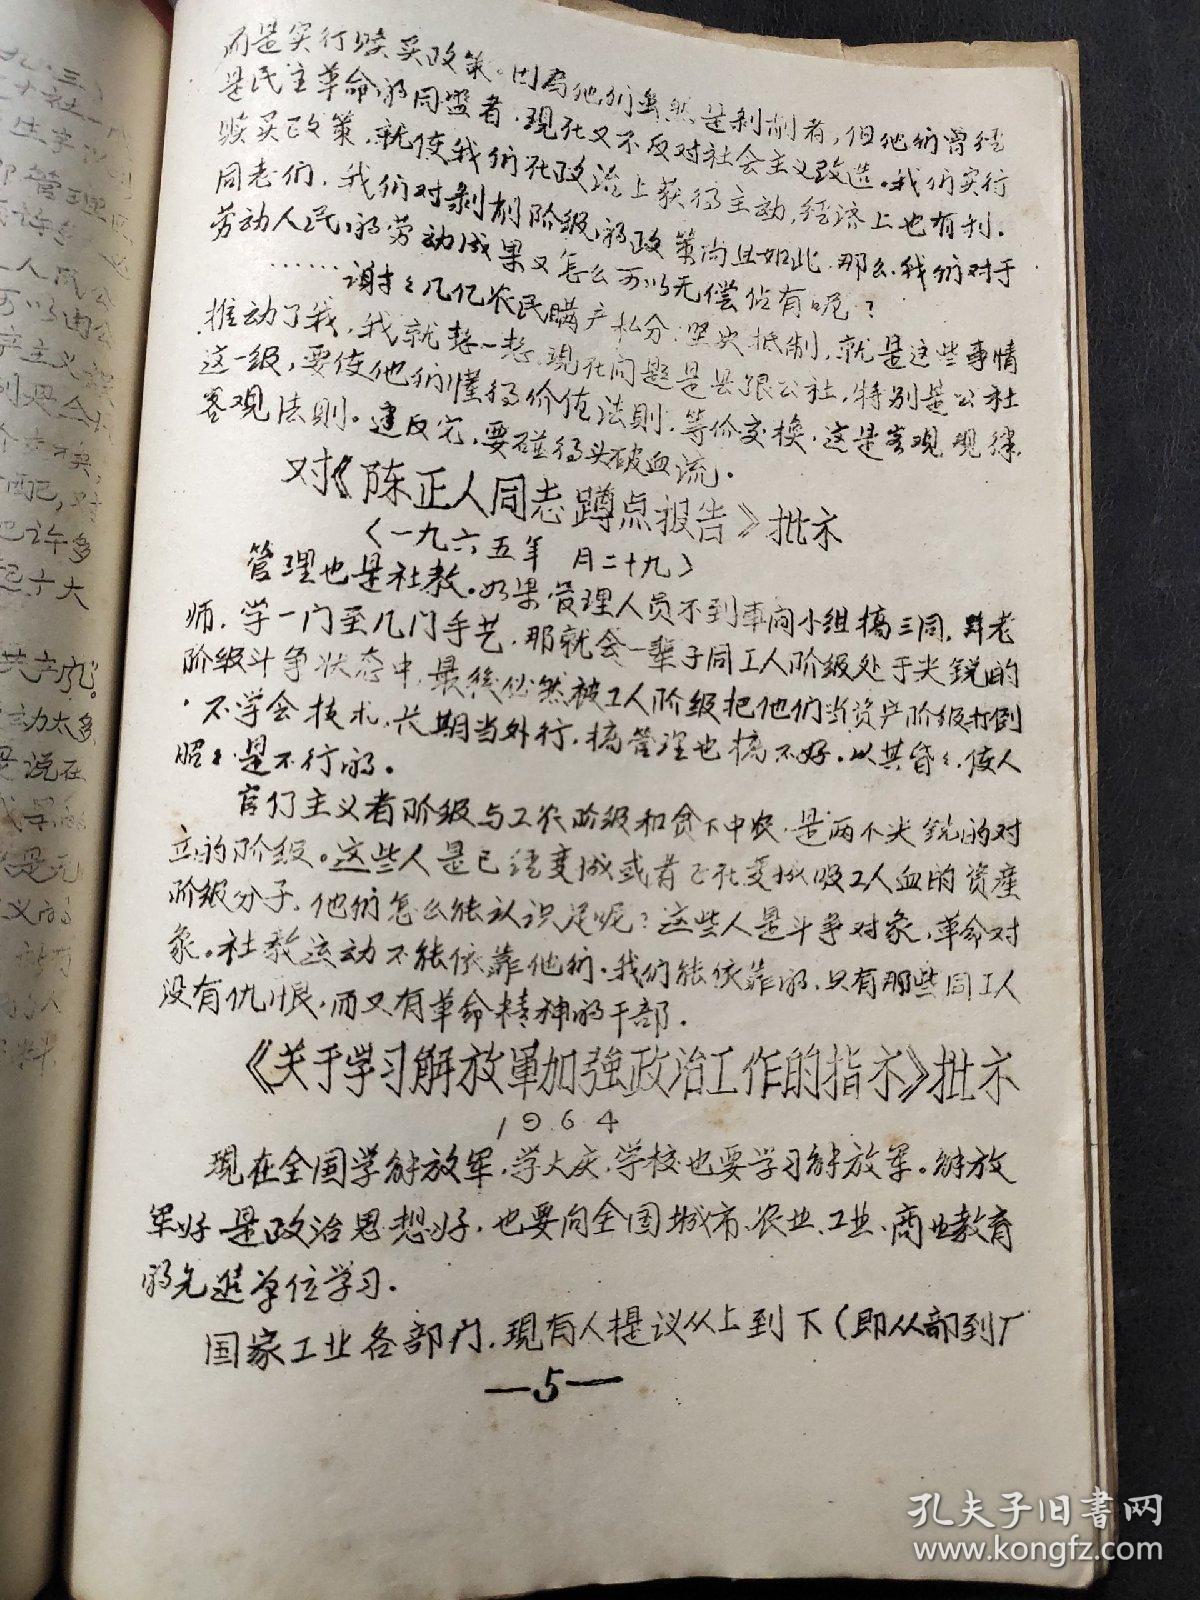 而是实行赎买政策。因为他们虽然是剥削者，但他们曾经
是民主革命的同盟者，现在又不反对社会主义改造。我们实行
赎买政策，就使我们在政治上获得主动，经济上也有利。
同志们，我们对剥削阶级的政策尚且如此，那么，我们对于
劳动人民的劳动成果又怎么可以无偿占有呢？
……谢谢几亿农民瞒产私分，坚决抵制，就是这些事情
推动了我，我就想一想，现在问题是县跟公社，特别是公社
这一级，要使他们懂得价值法则，等价交换，这是客观规律，
客观法则。违反它，要碰得头破血流。
对《陈正人同志蹲点报告》批示
〈一九六五年 月二十九〉
管理也是社教。如果管理人员不到车间小组搞三同，拜老
师，学一门至几门手艺，那就会一辈子同工人阶级处于尖锐的
阶级斗争状态中，最後必然被工人阶级把他们当资产阶级打倒
。不学会技术，长期当外行，搞管理也搞不好。以其昏々，使人
昭々，是不行的。
官们主义者阶级与工农阶级和贫下中农，是两个尖锐的对
立的阶级。这些人是已经变成或者正在变成吸工人血的资產
阶级分子，他们怎么能认识足呢？这些人是斗争对象，革命对
象。社教运动不能依靠他们。我们能依靠的，只有那些同工人
没有仇恨，而又有革命精神的干部。
《关于学习解放軍加強政治工作的指示》批示
1964
現在全国学解放军，学大庆，学校也要学习解放军。解放
军好是政治思想好，也要向全国城市、农业、工业、商业教育
的先進单位学习。
国家工业各部门，現有人提议从上到下（即从部到厂
—5—
孔夫子旧書网
www.kongfz.com